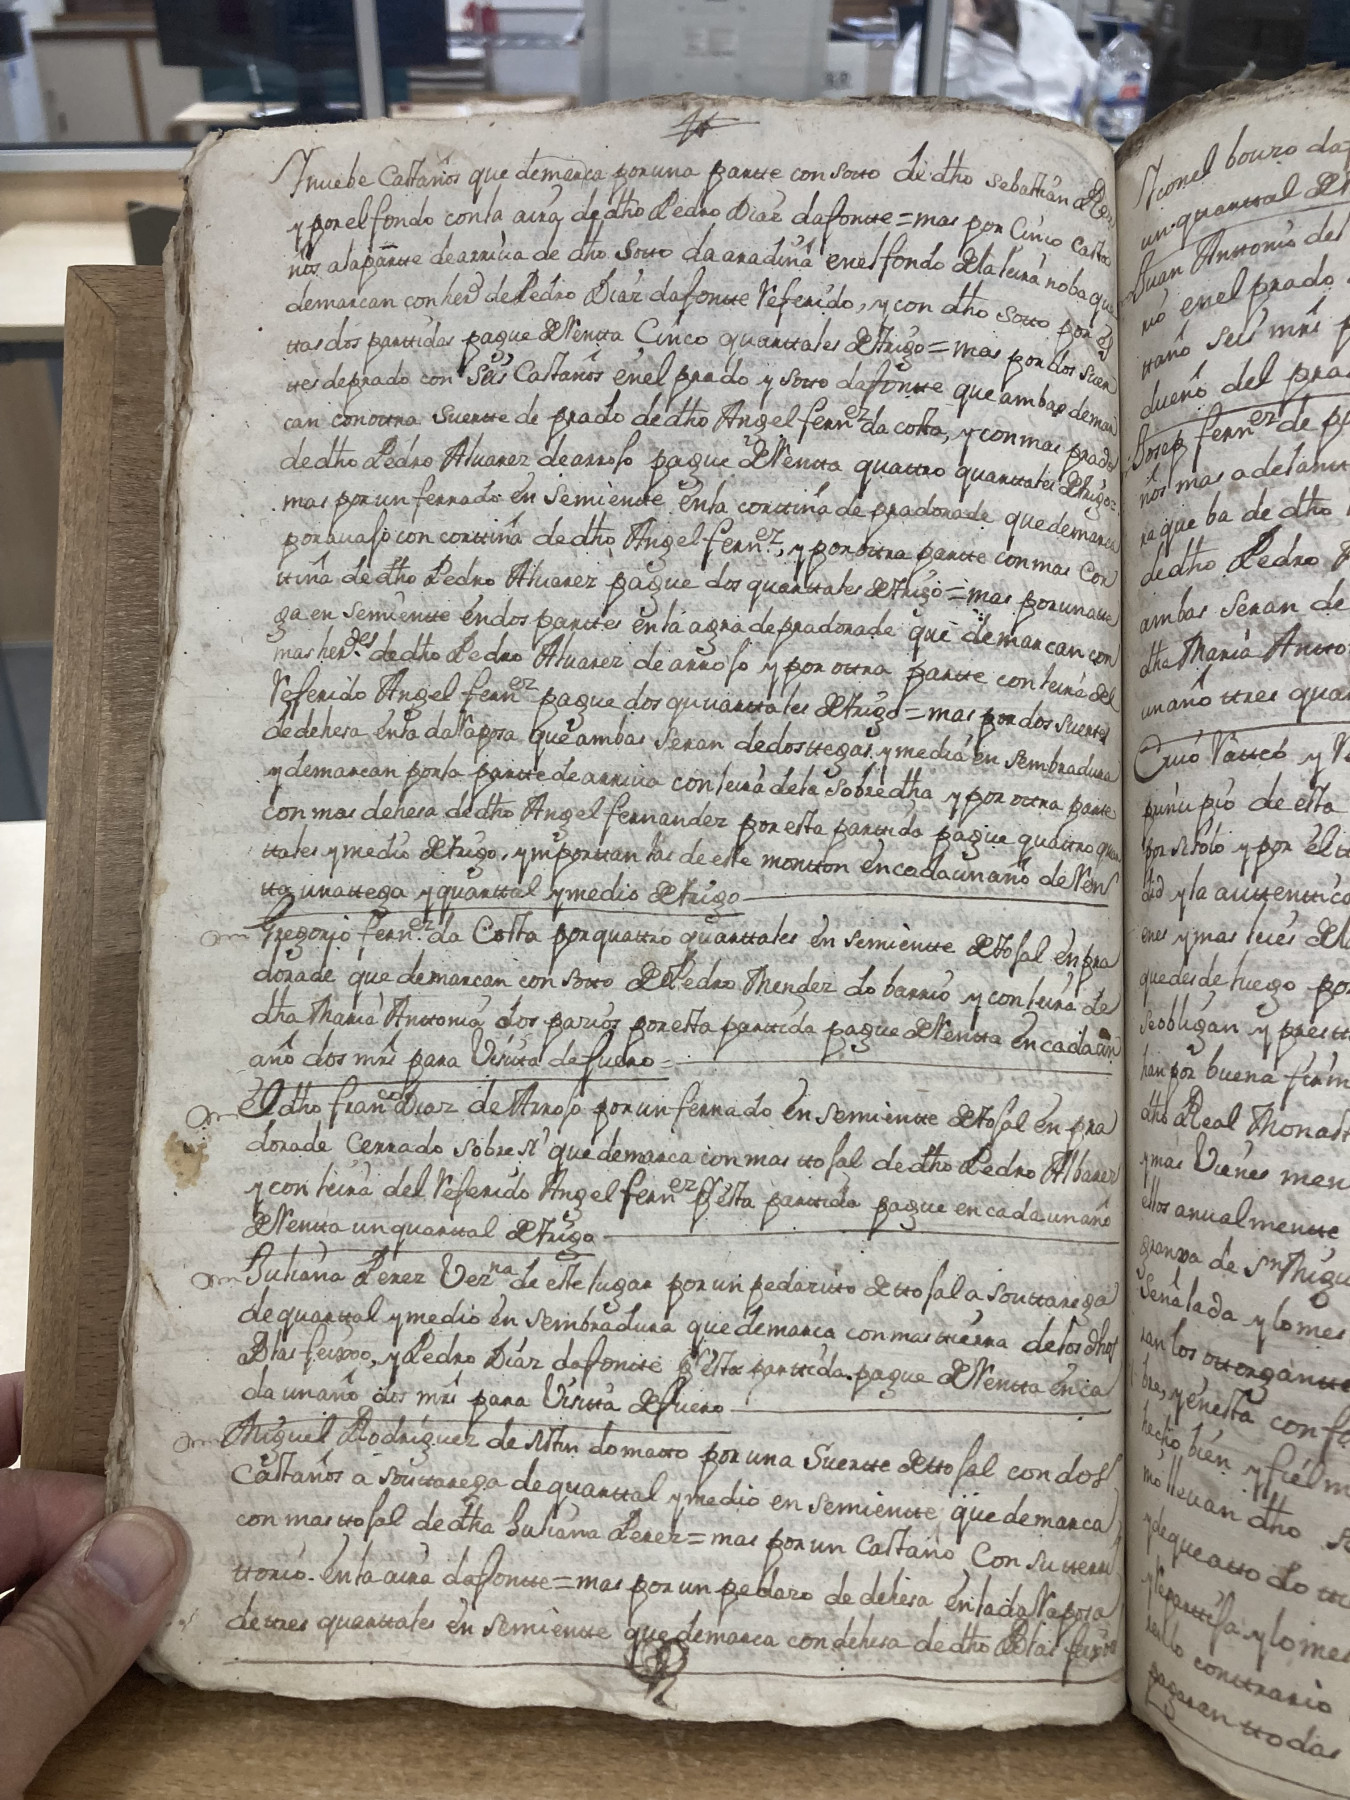 Ynuebe Castaños que demarca por una partte con sotto de dho Sebastian
y por el fondo con la aira de dho Pedro Diaz dafontte = mas por Cinco Casta
ños ala partte de arriva de dho Sotto da aradiña en el fondo dela leira noba que
demarcan con hero de Pedro Diaz dafontte Referido, y con dho sotto por es
ttas dos parttidas pague de Rentta Cinco quarttales de trigo = mas por dos suer
ttes de prado con Seis Castaños en el prado y sotto dafontte que ambas demar
can con ottra Suertte de prado de dho Angel fernez da costa, y con mas prado
de dho Pedro Alvarez de arroso pague de Rentta quattro quarttales de trigo =
mas por un ferrado en Semientte en la corttiña de pradorade que demarca
por avajo con corttiña de dho Angel fernez, y por ottra partte con mas Cor
ttiña de dho Pedro Alvarez pague dos quarttales de trigo = mas por una tte
ga en Semientte en dos parttes en la agra de pradorade que demarcan con
mas herdes de dho Pedro Alvarez de arroso y por ottra partte con leira del
Referido Angel fernez pague dos quarttales de trigo = mas por dos Suerttes
de dehesa en la da Raposa que ambas seran de dos ttegas y media en sembradura
y demarcan por la partte de arriva con leira dela sobredha y por ottra partte
con mas dehesa de dho Angel fernandez por esta parttida pague quattro quar
ttales y medio de trigo, y importtan las de este montton en cada un año de Ren
tta una ttega y quarttal y medio de trigo
Gregorio fernez da Costa por quattro quarttales en semientte de ttosal en pra
dorade que demarcan con sotto de Pedro Mendez do barrio y con leira de
dha Maria Anttonia dos parios por esta parttida pague de Rentta en cada un
año dos mrs para Visitta de fuero
El dho franco Diaz de Arroso por un ferrado en semientte de ttosal en pra
dorade Cerrado sobre si que demarca con mas ttosal de dho Pedro Albarez
y con leira del Referido Angel fernez por esta parttida pague en cada un año
de Rentta un quarttal de trigo
Juliana Perez Vezna de este lugar por un pedacito de ttosal a Souttarega
de quarttal y medio en sembradura que demarca con mas tierra de los dhos
Blas feixoo, y Pedro Diaz dafontte por esta parttida pague de Rentta en ca
da un año dos mrs para Visitta de fuero
Miguel Rodriguez de sttin do matto por una Suertte de ttosal con dos
Castaños a Souttarega de quarttal y medio en semientte que demarca
con mas ttosal de dha Juliana Perez = mas por un Castaño Con su terri
ttorio en la aira dafontte = mas por un pedazo de dehesa en la da Raposa
de tres quarttales en semientte que demarca con dehesa de dho Blas feixoo
Y con el bouzo da
un quarttal de
Juan Anttonio del
rio en el prado
ttano seis mrs p
dueño del pra
Josep fernez de
ños mas adelantt
ra que ba de dho
de dho Pedro
ambas seran de
dha Maria Antto
un año ttres quar
principio de esta
por si solo y por el
y la auttenttica
enes y mas leies de la
que desde luego por
se obligan y
han por buena firm
dho Real Monast
y mas Vienes men
ellos anualmentte
granxa de Sn Migu
Señalada y lo mes
ran los ottorgantte
bre, y en esta con
hecho bien y fielm
mo llevan dho
y de que atto do
y lo mes
contrario
pagaran ttodas